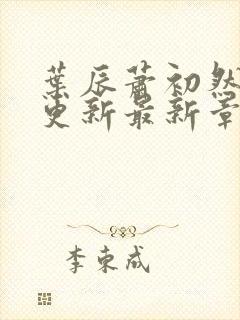 葉辰蕭初然
更新最新章
李東成